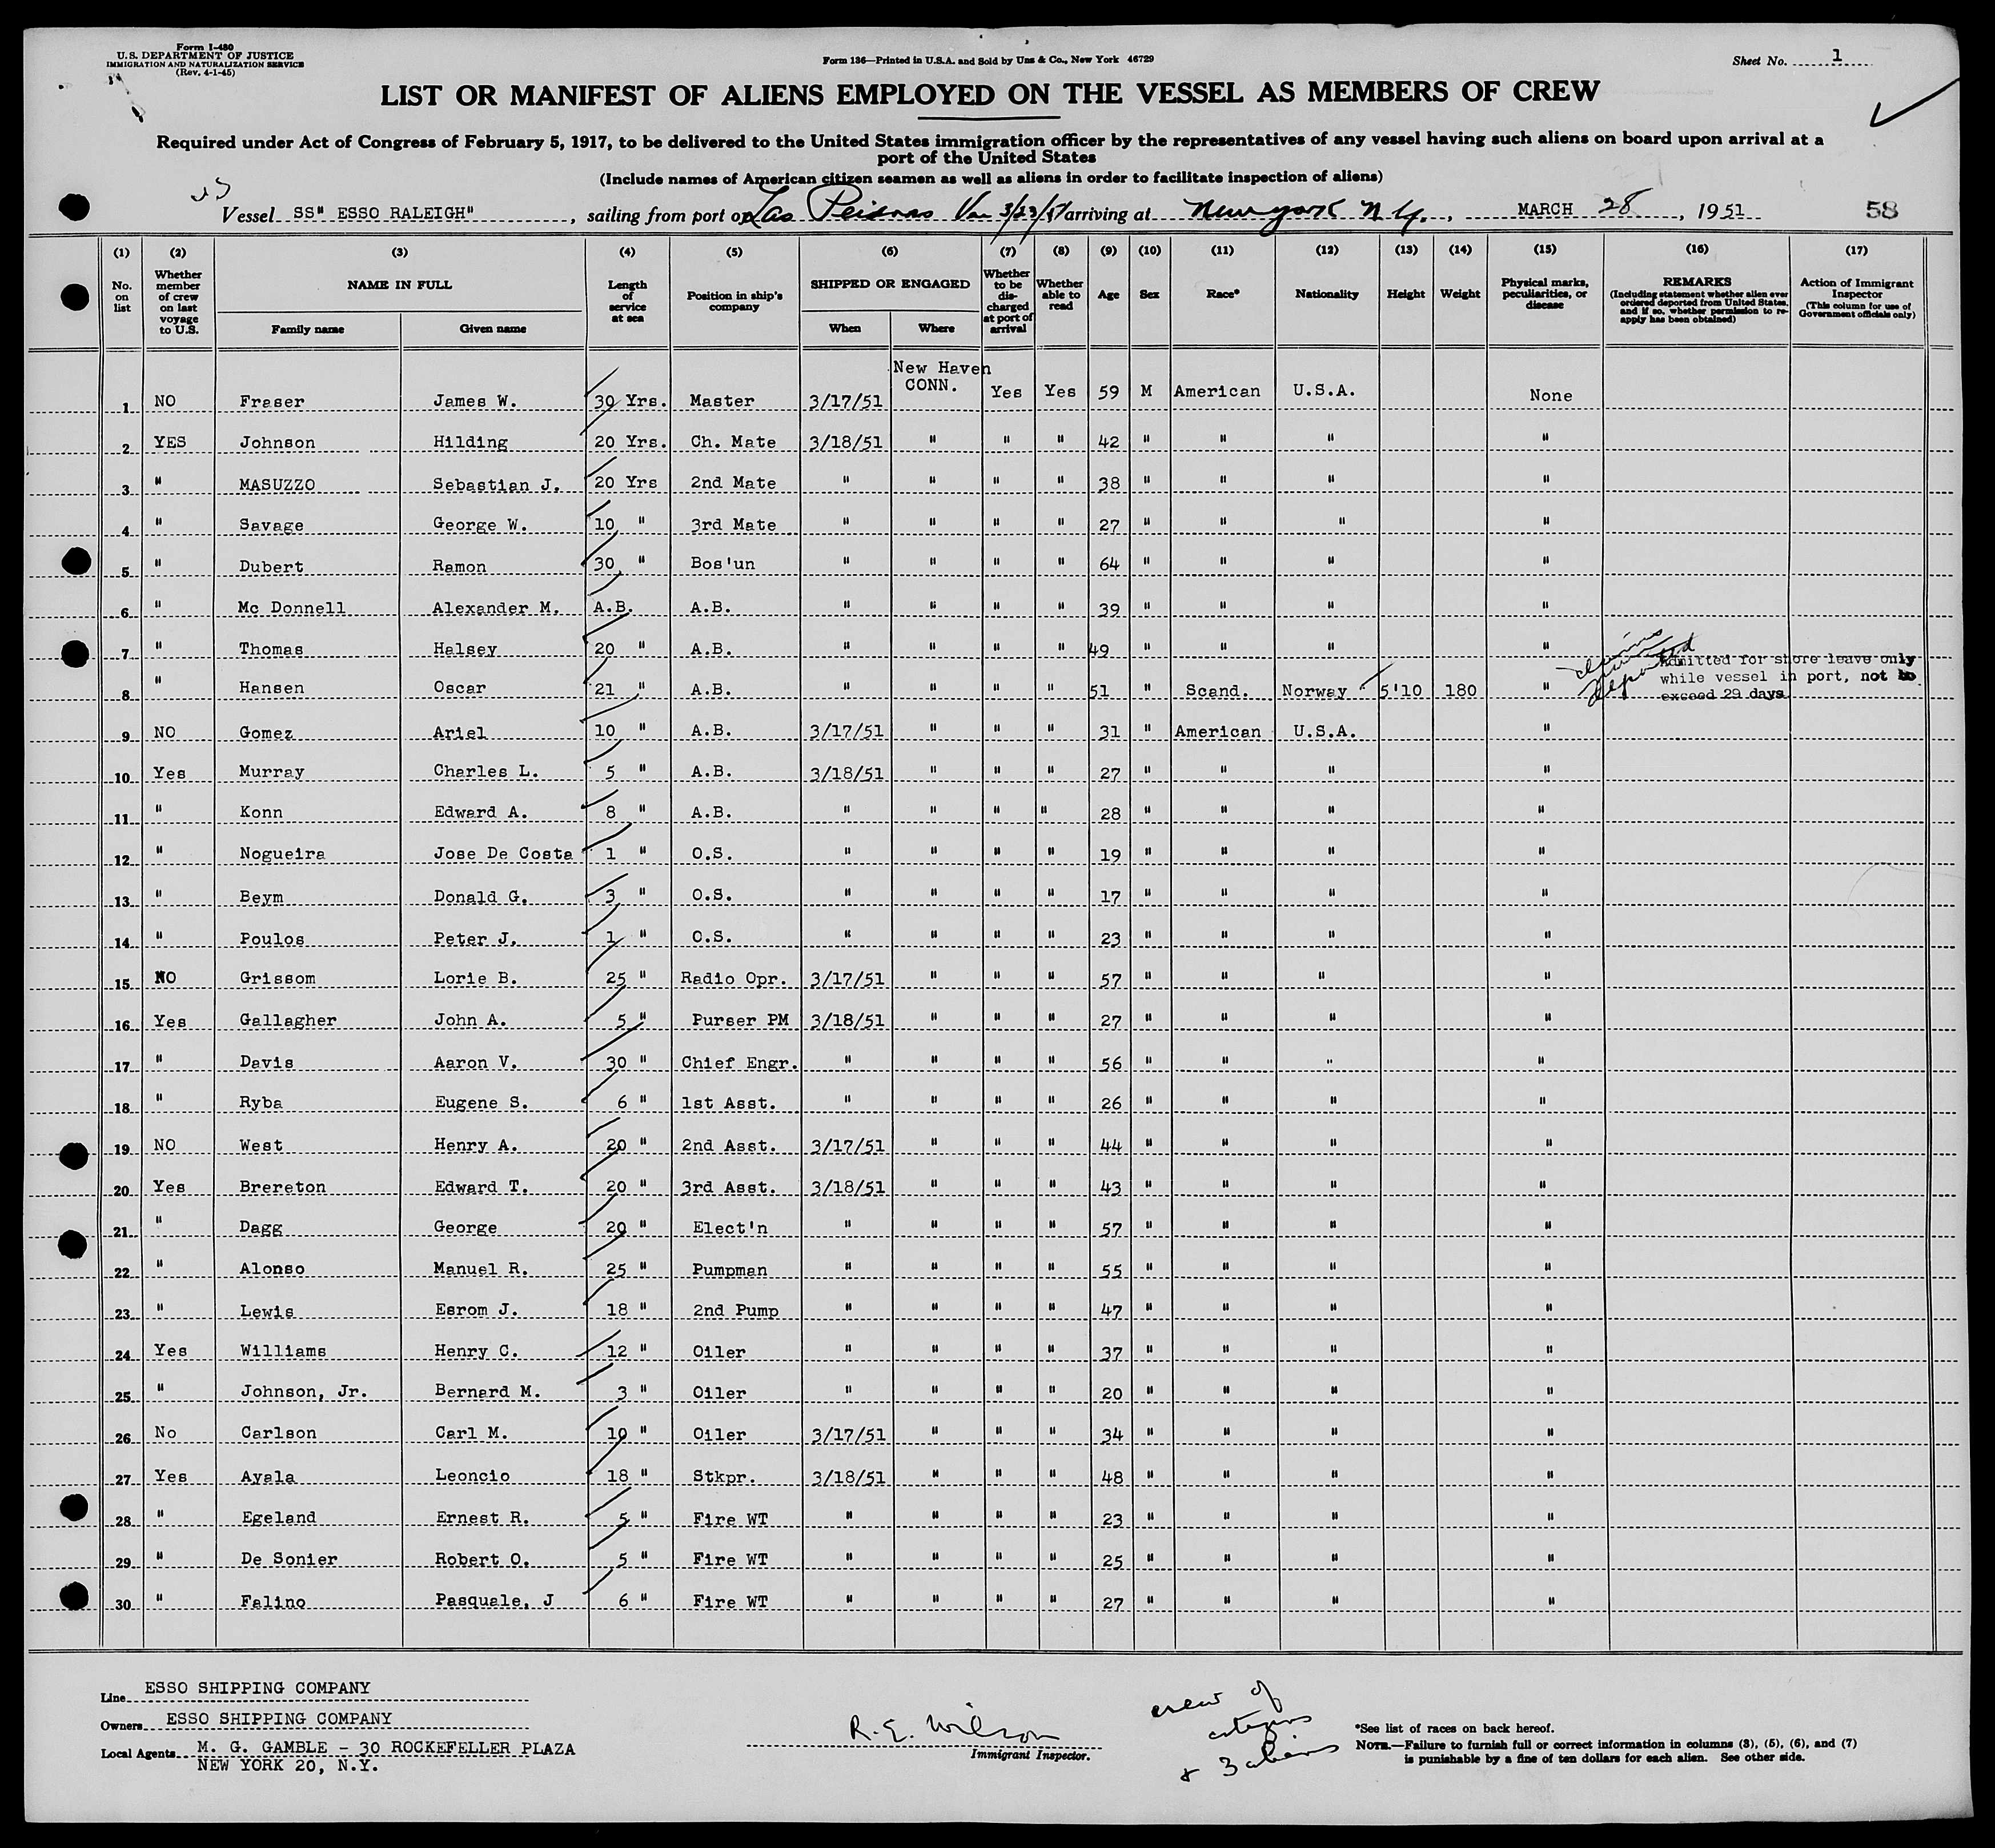 Form I-480
U.S. DEPARTMENT OF JUSTICE
IMMIGRATION AND NATURALIZATION SERVICE
(Rev. 4-1-45)
Form 136—Printed in U.S.A. and Sold by Unz & Co., New York 46729
Sheet No. 1
LIST OR MANIFEST OF ALIENS EMPLOYED ON THE VESSEL AS MEMBERS OF CREW
Required under Act of Congress of February 5, 1917, to be delivered to the United States immigration officer by the representatives of any vessel having such aliens on board upon arrival at a
port of the United States
(Include names of American citizen seamen as well as aliens in order to facilitate inspection of aliens)
Vessel SS" ESSO RALEIGH", sailing from port of Las Peidras Ven 3/23/51 arriving at New York N.Y., MARCH 28, 1951 58
(1) (2) (3) (4) (5) (6) (7) (8) (9) (10) (11) (12) (13) (14) (15) (16) (17)
No. on list Whether member of crew on last voyage to U.S. NAME IN FULL Family name Given name Length of service at sea Position in ship's company SHIPPED OR ENGAGED When Where Whether to be discharged at port of arrival Whether able to read Age Sex Race* Nationality Height Weight Physical marks, peculiarities, or disease REMARKS (Including statement whether alien ever ordered deported from United States, and if so, whether permission to re-apply has been obtained) Action of Immigrant Inspector (This column for use of Government officials only)
1 NO Fraser James W. 30 Yrs. Master 3/17/51 New Haven CONN. Yes Yes 59 M American U.S.A. None
2 YES Johnson Hilding 20 Yrs. Ch. Mate 3/18/51 " " " 42 " " " "
3 " MASUZZO Sebastian J. 20 Yrs 2nd Mate " " " " 38 " " " "
4 " Savage George W. 10 " 3rd Mate " " " " 27 " " " "
5 " Dubert Ramon 30 " Bos'un " " " " 64 " " " "
6 " Mc Donnell Alexander M. A.B. A.B. " " " " 39 " " " "
7 " Thomas Halsey 20 " A.B. " " " " 49 " " " "
8 " Hansen Oscar 21 " A.B. " " " " 51 " Scand. Norway 5'10 180 " Admitted for shore leave only while vessel in port, not to exceed 29 days
9 NO Gomez Ariel 10 " A.B. 3/17/51 " " " 31 " American U.S.A. "
10 Yes Murray Charles L. 5 " A.B. 3/18/51 " " " 27 " " " "
11 " Konn Edward A. 8 " A.B. " " " " 28 " " " "
12 " Nogueira Jose De Costa 1 " O.S. " " " " 19 " " " "
13 " Beym Donald G. 3 " O.S. " " " " 17 " " " "
14 " Poulos Peter J. 1 " O.S. " " " " 23 " " " "
15 NO Grissom Lorie B. 25 " Radio Opr. 3/17/51 " " " 57 " " " "
16 Yes Gallagher John A. 5 " Purser PM 3/18/51 " " " 27 " " " "
17 " Davis Aaron V. 30 " Chief Engr. " " " " 56 " " " "
18 " Ryba Eugene S. 6 " 1st Asst. " " " " 26 " " " "
19 NO West Henry A. 20 " 2nd Asst. 3/17/51 " " " 44 " " " "
20 Yes Brereton Edward T. 20 " 3rd Asst. 3/18/51 " " " 43 " " " "
21 " Dagg George 20 " Elect'n " " " " 57 " " " "
22 " Alonso Manuel R. 25 " Pumpman " " " " 55 " " " "
23 " Lewis Esrom J. 18 " 2nd Pump " " " " 47 " " " "
24 Yes Williams Henry C. 12 " Oiler " " " " 37 " " " "
25 " Johnson, Jr. Bernard M. 3 " Oiler " " " " 20 " " " "
26 No Carlson Carl M. 10 " Oiler 3/17/51 " " " 34 " " " "
27 Yes Ayala Leoncio 18 " Stkpr. 3/18/51 " " " 48 " " " "
28 " Egeland Ernest R. 5 " Fire WT " " " " 23 " " " "
29 " De Sonier Robert O. 5 " Fire WT " " " " 25 " " " "
30 " Falino Pasquale, J 6 " Fire WT " " " " 27 " " " "
Line ESSO SHIPPING COMPANY
Owners ESSO SHIPPING COMPANY
Local Agents M. G. GAMBLE - 30 ROCKEFELLER PLAZA
NEW YORK 20, N.Y.
R. E. Wilson
Immigrant Inspector.
crew of
citizens
& 3 aliens
*See list of races on back hereof.
NOTE.—Failure to furnish full or correct information in columns (3), (5), (6), and (7)
is punishable by a fine of ten dollars for each alien. See other side.